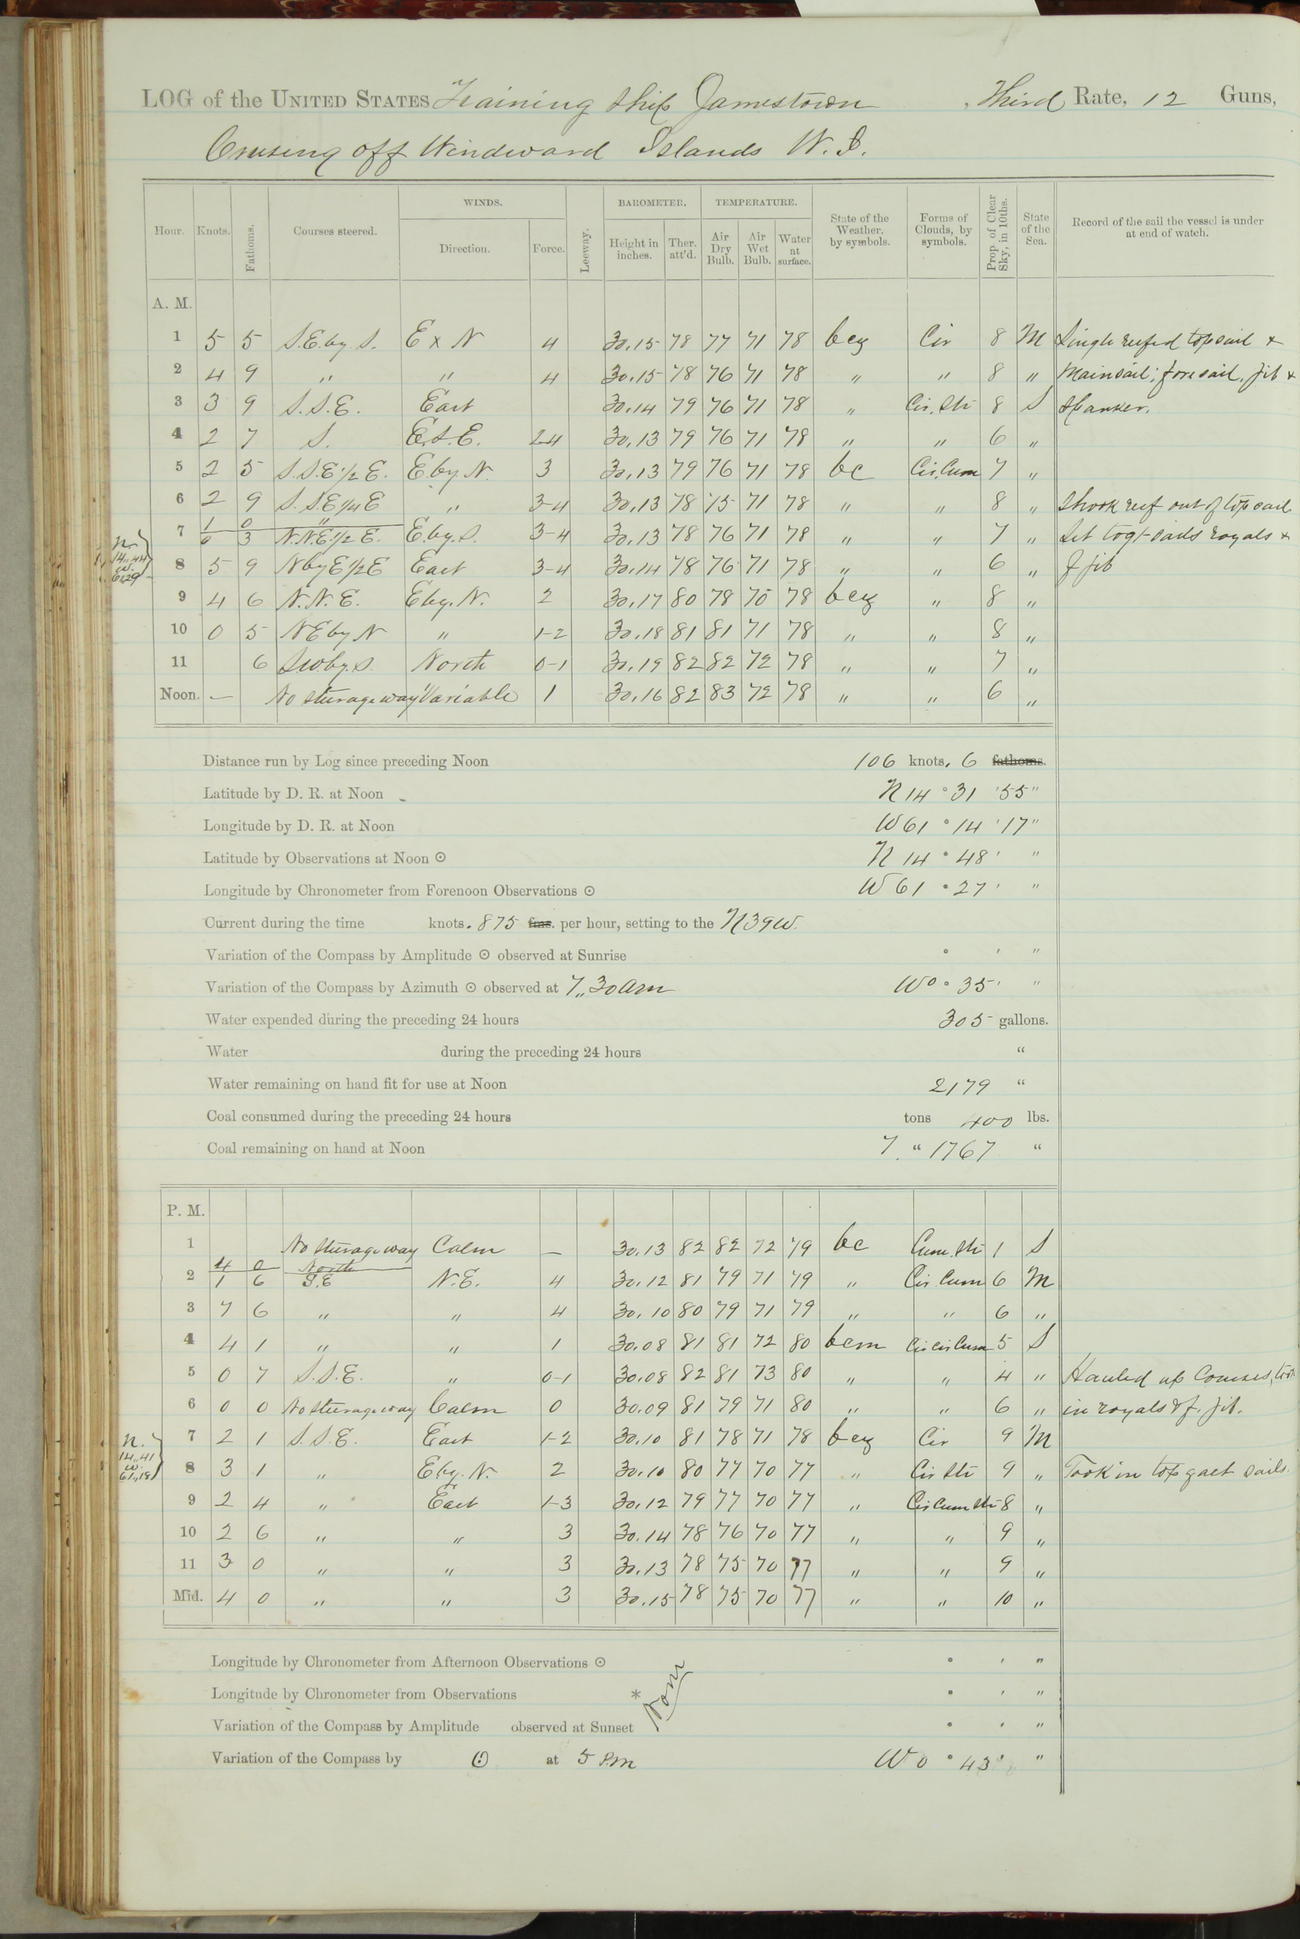 LOG of the UNITED STATES Training Ship Jamestown, Third Rate, 12 Guns,
Cruising off Windward Islands W. I.
Hour. Knots. Fathoms. Courses steered. WINDS. Direction. Force. Leeway. BAROMETER. Height in inches. Ther. att'd. TEMPERATURE. Air Dry Bulb. Air Wet Bulb. Water at surface. State of the Weather, by symbols. Forms of Clouds, by symbols. Prop. of Clear Sky, in 10ths. State of the Sea. Record of the sail the vessel is under at end of watch.
A. M.
1 5 5 S.E. by S. E x N 4 30.15 78 77 71 78 bcq Cir 8 M Single reefed topsail &
2 4 9 " " 4 30.15 78 76 71 78 " " 8 " Mainsail; foresail, jib &
3 3 9 S.S.E. East 30.14 79 76 71 78 " Cir. Str 8 S Spanker.
4 2 7 S. E.S.E. 2-4 30.13 79 76 71 78 " " 6 "
5 2 5 S.S.E 1/2 E. E. by N. 3 30.13 79 76 71 78 bc Cir. Cum 7 "
6 2 9 S.S.E 1/4 E " 3-4 30.13 78 75 71 78 " " 8 " Shook reef out of topsail
1 0 "
7 6 3 N.N.E. 1/2 E. E. by. S. 3-4 30.13 78 76 71 78 " " 7 " Set togt-sails royals &
N. 14..44 W. 61.29
8 5 9 N by E 1/2 E East 3-4 30.14 78 76 71 78 " " 6 " f jib
9 4 6 N. N. E. E by. N. 2 30.17 80 78 70 78 bcq " 8 "
10 0 5 N E by N " 1-2 30.18 81 81 71 78 " " 8 "
11 6 SW by. S. North 0-1 30.19 82 82 72 78 " " 7 "
Noon. — No sturage way Variable 1 30.16 82 83 72 78 " " 6 "
Distance run by Log since preceding Noon 106 knots. 6 fathoms.
Latitude by D. R. at Noon N 14 ° 31 ' 55 "
Longitude by D. R. at Noon W 61 ° 14 ' 17 "
Latitude by Observations at Noon ⊙ N 14 ° 48 ' "
Longitude by Chronometer from Forenoon Observations ⊙ W 61 ° 27 ' "
Current during the time knots .875 fms. per hour, setting to the N39W.
Variation of the Compass by Amplitude ⊙ observed at Sunrise ° ' "
Variation of the Compass by Azimuth ⊙ observed at 7,,30 am W 0 ° 35 ' "
Water expended during the preceding 24 hours 305 gallons.
Water during the preceding 24 hours "
Water remaining on hand fit for use at Noon 2179 "
Coal consumed during the preceding 24 hours tons 400 lbs.
Coal remaining on hand at Noon 7. " 1767 "
P. M.
1 No sturage way Calm — 30.13 82 82 72 79 bc Cum. Str 1 S
4 0 North
2 1 6 S.E N.E. 4 30.12 81 79 71 79 " Cir. Cum 6 M
3 7 6 " " 4 30.10 80 79 71 79 " " 6 "
4 4 1 " " 1 30.08 81 81 72 80 bcm Cir cir Cum 5 S
5 0 7 S.S.E. " 0-1 30.08 82 81 73 80 " " 4 " Hauled up Courses, took
6 0 0 No sturage way Calm 0 30.09 81 79 71 80 " " 6 " in royals & f. jib.
7 2 1 S.S.E. East 1-2 30.10 81 78 71 78 bcq Cir 9 M
N. 14..41 W. 61,,18
8 3 1 " E by. N. 2 30.10 80 77 70 77 " Cir Str 9 " Took in top gall sails.
9 2 4 " East 1-3 30.12 79 77 70 77 " Cir Cum Str 8 "
10 2 6 " " 3 30.14 78 76 70 77 " " 9 "
11 3 0 " " 3 30.13 78 75 70 77 " " 9 "
Mid. 4 0 " " 3 30.15 78 75 70 77 " " 10 "
Longitude by Chronometer from Afternoon Observations ⊙ ° ' "
Longitude by Chronometer from Observations * ° ' "
None
Variation of the Compass by Amplitude observed at Sunset ° ' "
Variation of the Compass by ⊙ at 5 P.m W 0 ° 43 ' "